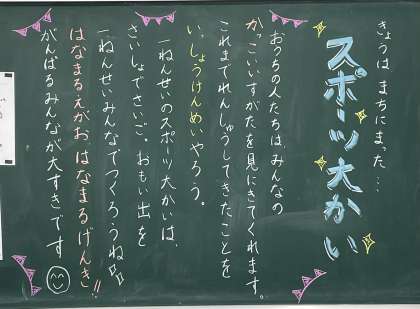 きょうは まちにまった…
スポーツ大かい
おうちの人たちは、みんなの
かっこいいすがたを見にきてくれます。
これまでれんしゅうしてきたことを
いっしょうけんめいやろう。
一ねんせいのスポーツ大かいは、
さいしょでさいご。おもい出を
一ねんせいみんなでつくろうね!!
はなまるえがお はなまるげんき!!
がんばるみんなが大すきです